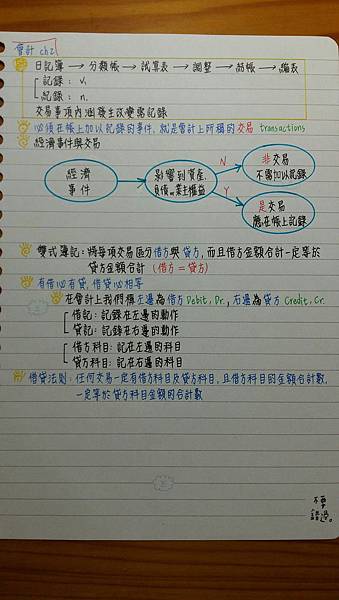 會計 ch2
日記簿 → 分類帳 → 試算表 → 調整 → 結帳 → 編表
記錄: v.
紀錄: n.
交易事項內涵發生改變需記錄
必須在帳上加以記錄的事件, 就是會計上所稱的交易 transactions
經濟事件與交易
經濟
事件
影響到資產
負債or業主權益
N
非交易
不需加以記錄
Y
是交易
應在帳上記錄
雙式簿記: 將每項交易區分借方與貸方, 而且借方金額合計一定等於
貸方金額合計 (借方 = 貸方)
有借必有貸, 借貸必相等
在會計上我們稱左邊為借方 Debit, Dr., 右邊為貸方 Credit, Cr.
借記: 記錄在左邊的動作
貸記: 記錄在右邊的動作
借方科目: 記在左邊的科目
貸方科目: 記在右邊的科目
借貸法則: 任何交易一定有借方科目及貸方科目, 且借方科目的金額合計數,
一定等於貸方科目金額的合計數